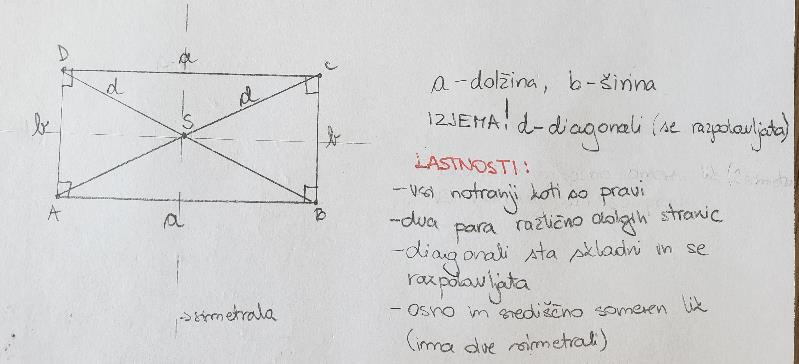 D
a
C
d
d
S
b
b
A
a
B
→ simetrala
a - dolžina, b - širina
IZJEMA! d - diagonali (se razpolavljata)
LASTNOSTI:
- vsi notranji koti so pravi
- dva para različno dolgih stranic
- diagonali sta skladni in se
razpolavljata
- osno in središčno someren lik
(ima dve simetrali)